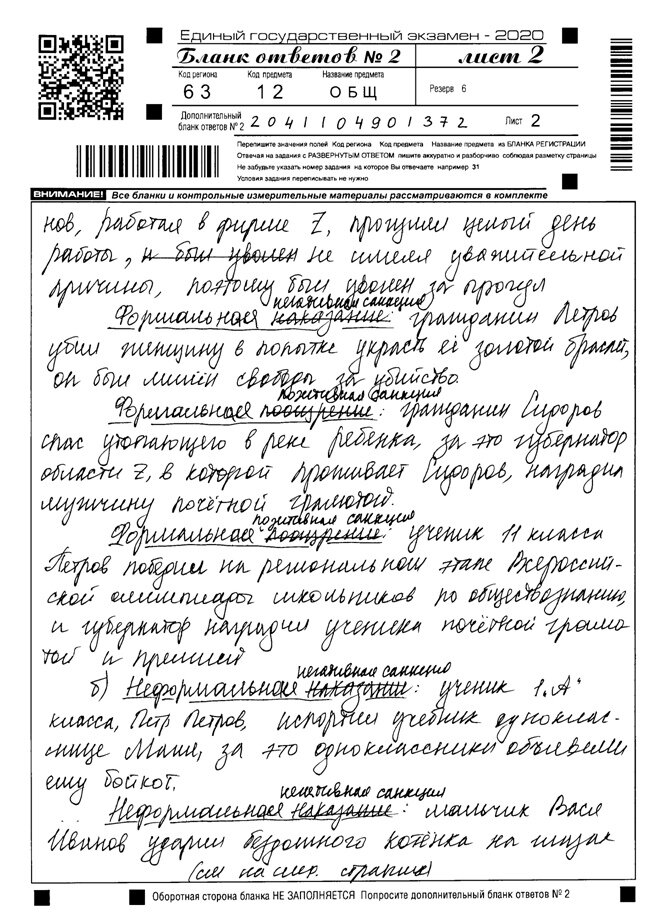 Единый государственный экзамен - 2020
Бланк ответов № 2 лист 2
Код региона Код предмета Название предмета
63 12 ОБЩ Резерв 6
Дополнительный
бланк ответов № 2 2041104901372 Лист 2
Перепишите значения полей Код региона Код предмета Название предмета из БЛАНКА РЕГИСТРАЦИИ
Отвечая на задания с РАЗВЕРНУТЫМ ОТВЕТОМ пишите аккуратно и разборчиво соблюдая разметку страницы
Не забудьте указать номер задания на которое Вы отвечаете например 31
Условия задания переписывать не нужно
ВНИМАНИЕ! Все бланки и контрольные измерительные материалы рассматриваются в комплекте
нов, работая в фирме Z, прогулял целый день
работы, и был уволен не имея уважительной
причины, поэтому был уволен за прогул
негативная санкция
Формальная наказание: гражданин Петров
убил женщину в попытке украсть её золотой браслет,
он был лишён свободы за убийство.
позитивная санкция
Формальная поощрение: гражданин Сидоров
спас утопающего в реке ребёнка, за это губернатор
области Z, в которой проживает Сидоров, наградил
мужчину почётной грамотой.
позитивная санкция
Формальная поощрение: ученик 11 класса
Петров победил на региональном этапе Всероссий-
ской олимпиады школьников по обществознанию,
и губернатор наградил ученика почётной грамо
той и премией
негативная санкция
б) Неформальная наказание: ученик 1 "А"
класса, Пётр Петров, испортил учебник однокласс-
нице Маше, за это одноклассники объявили
ему бойкот.
негативная санкция
... Неформальная наказание: мальчик Вася
Иванов ударил бездомного котёнка на глазах
(см на след. странице)
Оборотная сторона бланка НЕ ЗАПОЛНЯЕТСЯ Попросите дополнительный бланк ответов № 2